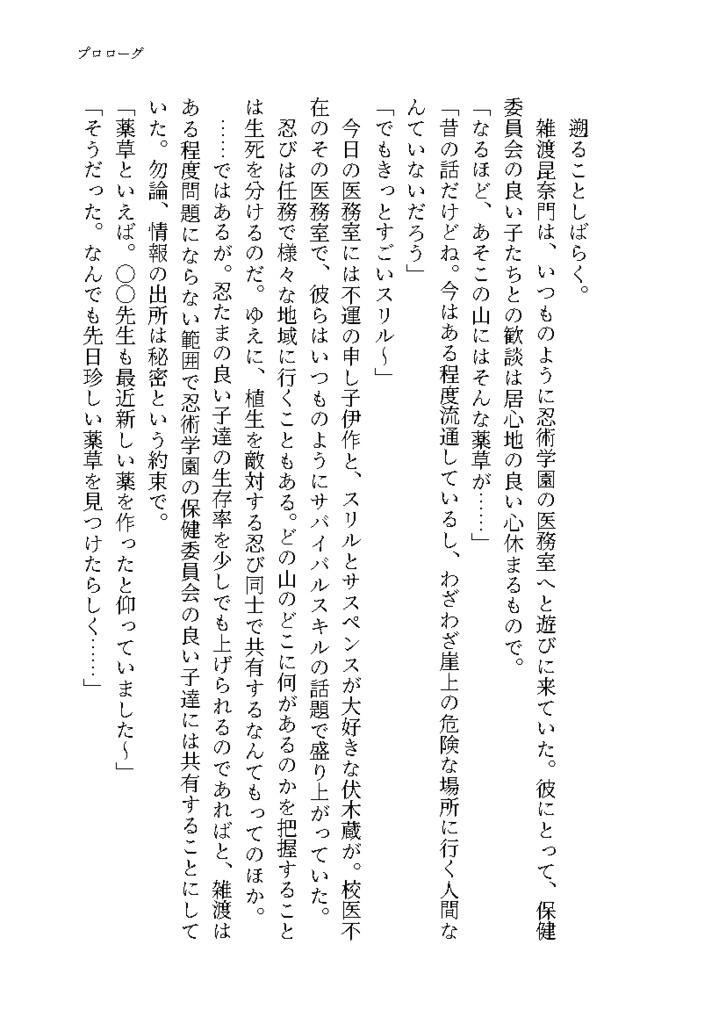 プロローグ
遡ることしばらく。
雑渡昆奈門は、いつものように忍術学園の医務室へと遊びに来ていた。彼にとって、保健
委員会の良い子たちとの歓談は居心地の良い心休まるもので。
「なるほど、あそこの山にはそんな薬草が……」
「昔の話だけどね。今はある程度流通しているし、わざわざ崖上の危険な場所に行く人間な
んていないだろう」
「でもきっとすごいスリル～」
今日の医務室には不運の申し子伊作と、スリルとサスペンスが大好きな伏木蔵が。校医不
在のその医務室で、彼らはいつものようにサバイバルスキルの話題で盛り上がっていた。
忍びは任務で様々な地域に行くこともある。どの山のどこに何があるのかを把握すること
は生死を分けるのだ。ゆえに、植生を敵対する忍び同士で共有するなんてもってのほか。
……ではあるが。忍たまの良い子達の生存率を少しでも上げられるのであればと、雑渡は
ある程度問題にならない範囲で忍術学園の保健委員会の良い子達には共有することにして
いた。勿論、情報の出所は秘密という約束で。
「薬草といえば。〇〇先生も最近新しい薬を作ったと仰っていました～」
「そうだった。なんでも先日珍しい薬草を見つけたらしく……」